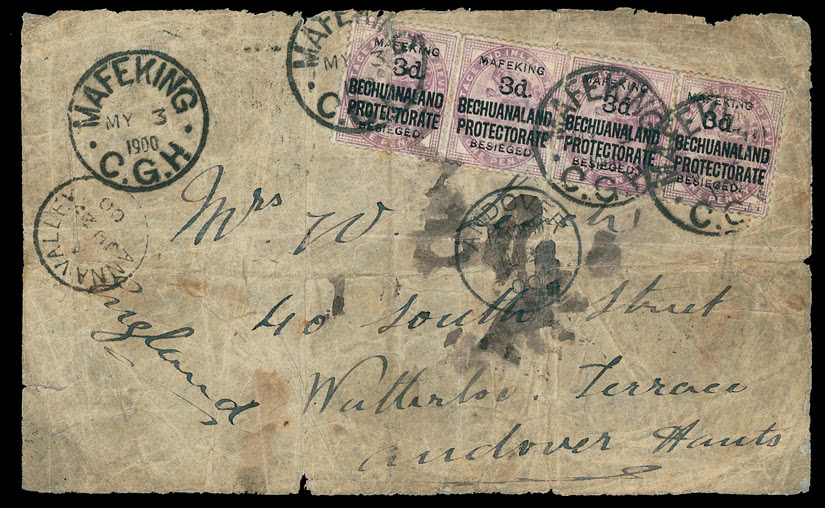 MAFEKING
MY 3
1900
C.G.H
MAFEKING
MY 3
C.
MAFEKING
3d.
BECHUANALAND
PROTECTORATE
BESIEGED.
MAFEKING
3d.
BECHUANALAND
PROTECTORATE
BESIEGED.
MAFEKING
3d.
BECHUANALAND
PROTECTORATE
BESIEGED.
MAFEKING
3d.
BECHUANALAND
PROTECTORATE
BESIEGED.
MAFEKING
C.G.H
C.G
ANNA VALLEY
00
ANDOVER
00
Mrs W.
40 South Street
Watterloo Terrace
andover Hants
England